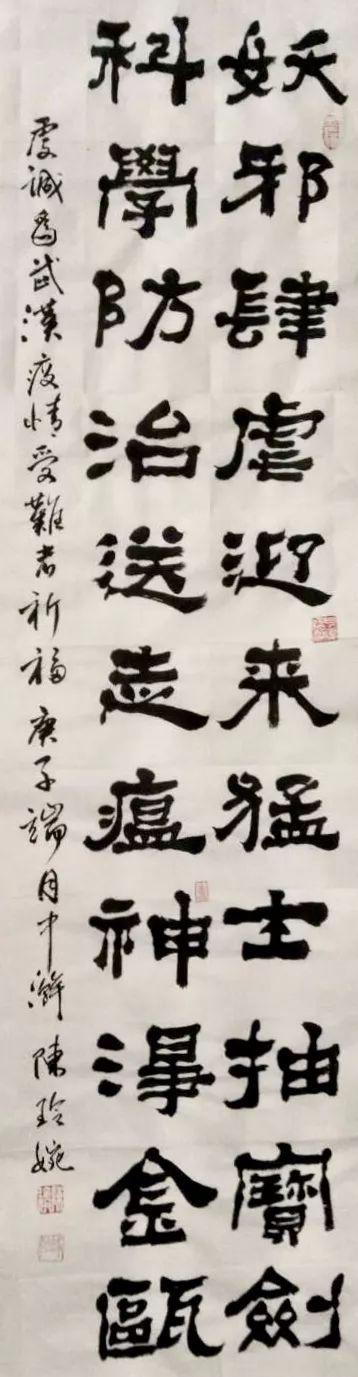 妖邪肆虐迎来猛士抽寶劍
科學防治送走瘟神澤金甌
虔誠為武漢疫情受難者祈福 庚子端月中澣 陳玲婉